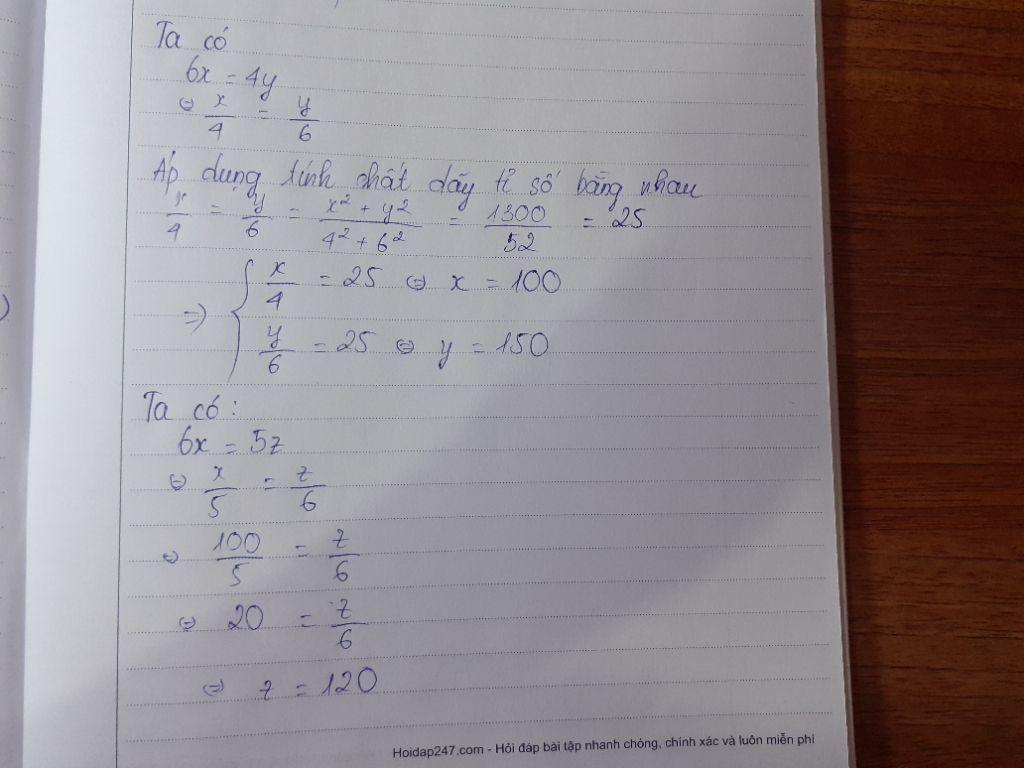 Ta có
6x = 4y
⇔ x/4 = y/6
Áp dụng tính chất dãy tỉ số bằng nhau
x/4 = y/6 = (x² + y²)/(4² + 6²) = 1300/52 = 25
⇒ { x/4 = 25 ⇔ x = 100
y/6 = 25 ⇔ y = 150
Ta có :
6x = 5z
⇔ x/5 = z/6
⇔ 100/5 = z/6
⇔ 20 = z/6
⇔ z = 120
Hoidap247.com - Hỏi đáp bài tập nhanh chóng, chính xác và luôn miễn phí